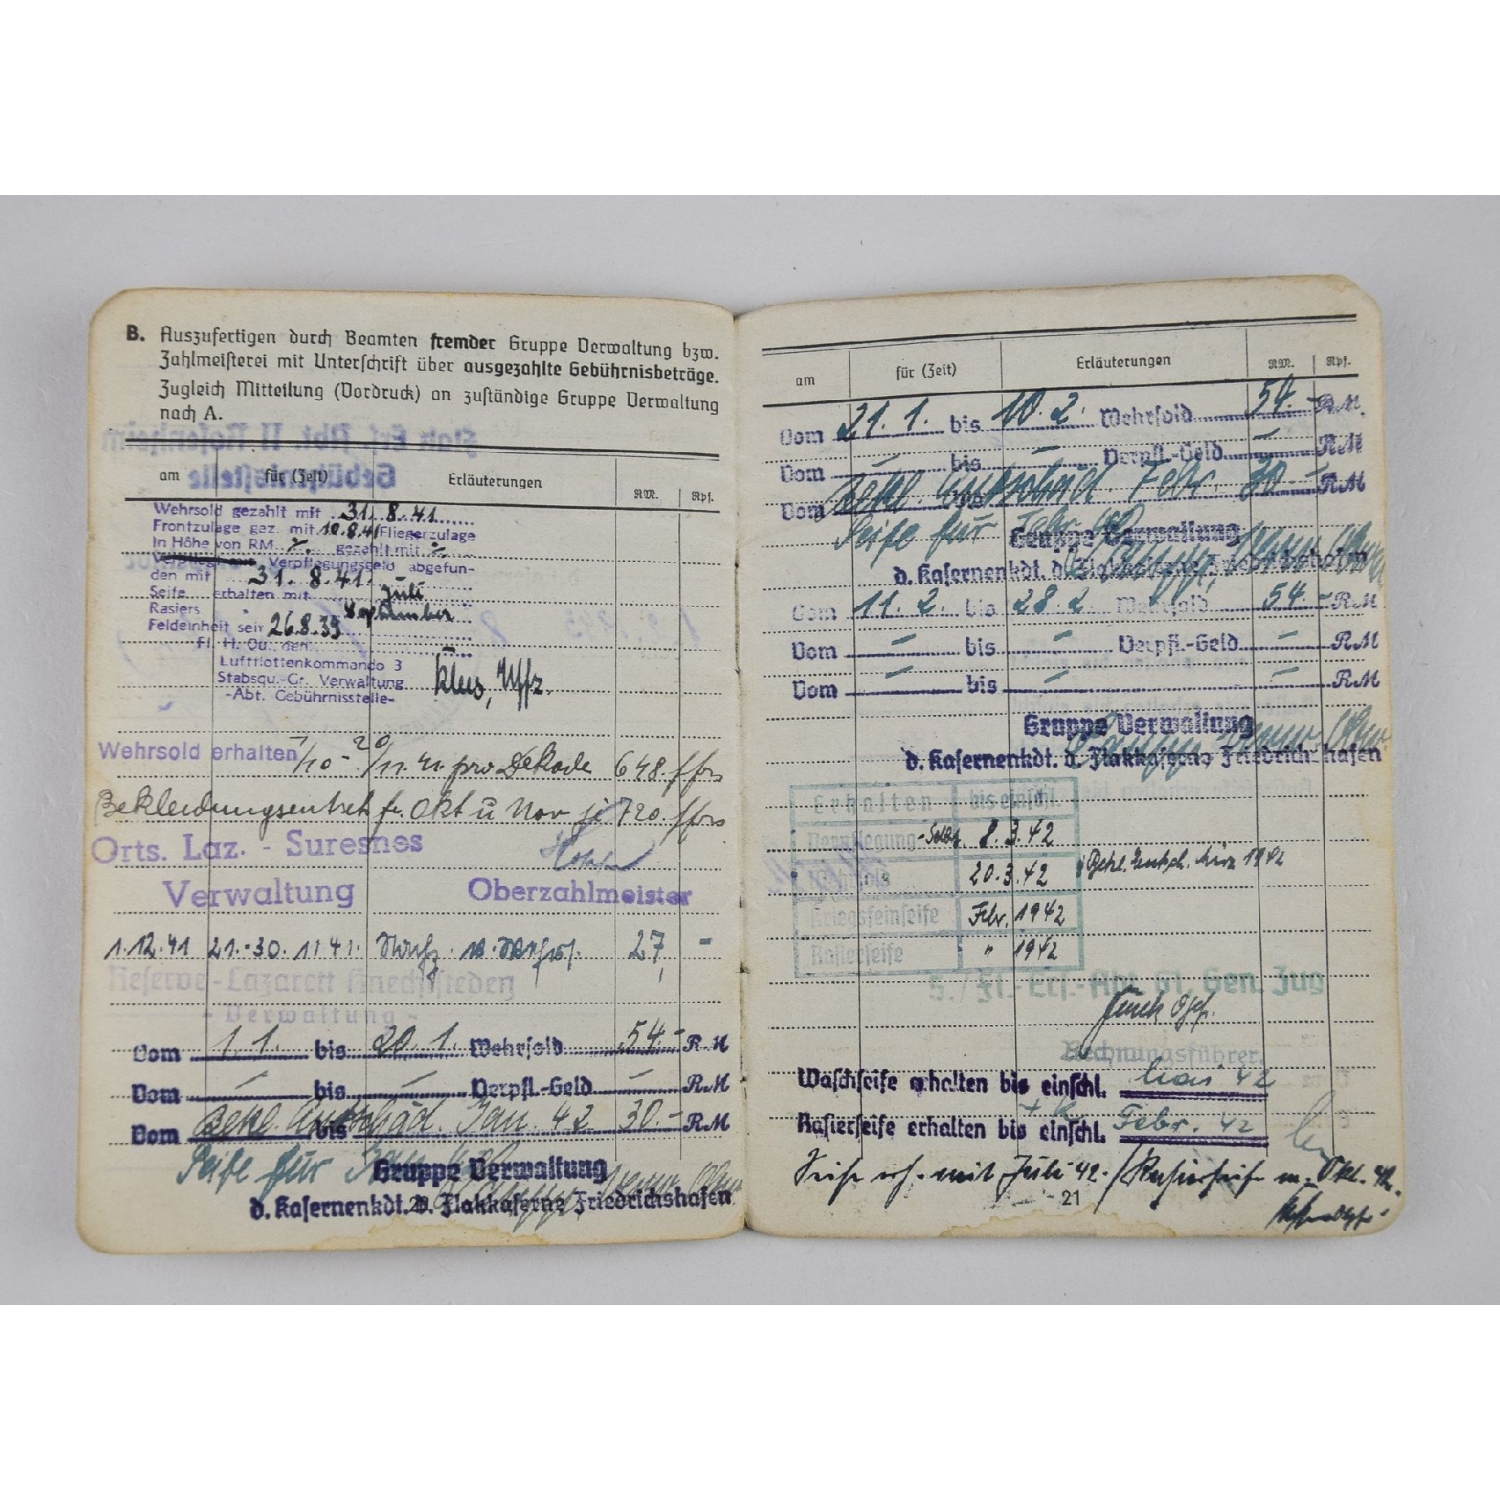 B. Auszufertigen durch Beamten fremder Gruppe Verwaltung bzw.
Zahlmeisterei mit Unterschrift über ausgezahlte Gebührnisbeträge.
Zugleich Mitteilung (Vordruck) an zuständige Gruppe Verwaltung
nach A.
am für (Zeit) Erläuterungen RM. Rpf.
Wehrsold gezahlt mit 31. 8. 41.
Frontzulage gez. mit 10.8.41 Fliegerzulage
In Höhe von RM gezahlt mit
Verpflegungsgeld abgefun-
den mit 31. 8. 41.
Seife erhalten mit Juli
Rasiers " September
Feldeinheit seit 26.8.39
Fl. H. Qu., den
Luftflottenkommando 3
Stabsqu.-Gr. Verwaltung
-Abt. Gebührnisstelle-
Uffz.
Wehrsold erhalten 1/10 - 20/11 41 pro Dekade 648. ffrs
Bekleidungsentsch. fr. Okt u Nov je 720. ffrs
Orts. Laz. - Suresnes
Verwaltung Oberzahlmeister
1.12.41 21.-30. 11 41. 27, -
Reserve-Lazarett Knechtsteden
- Verwaltung -
Vom 1. 1. bis 20. 1. Wehrsold 54.- RM
Vom - bis - Verpfl.-Geld - RM
Vom Bekl. Entschäd. bis Jan. 42 30.- RM
Seife für Jan.
Gruppe Verwaltung
d. Kasernenkdt. d. Flakkaserne Friedrichshafen
20
am für (Zeit) Erläuterungen RM. Rpf.
Vom 21. 1. bis 10. 2. Wehrsold 54.- RM
Vom - bis - Verpfl.-Geld - RM
Vom Bekl. Entschäd. Febr. 30.- RM
Seife für Febr.
Gruppe Verwaltung
d. Kasernenkdt. d. Flakkaserne Friedrichshafen
Vom 11. 2. bis 28. 2. Wehrsold 54.- RM
Vom - bis - Verpfl.-Geld - RM
Vom - bis - RM
Gruppe Verwaltung
d. Kasernenkdt. d. Flakkaserne Friedrichshafen
Erhalten bis einschl.
Verpflegung- 8. 3. 42
20. 3. 42 Bekl. Entsch. März 1942
Kriegsfeinseife Febr. 1942
Rasierseife " 1942
Gen. Zug
Rechnungsführer
Waschseife erhalten bis einschl. Mai 42
Rasierseife erhalten bis einschl. Febr. 42
Seife erh. mit Juli 42. / Rasierseife m. Okt. 42.
21